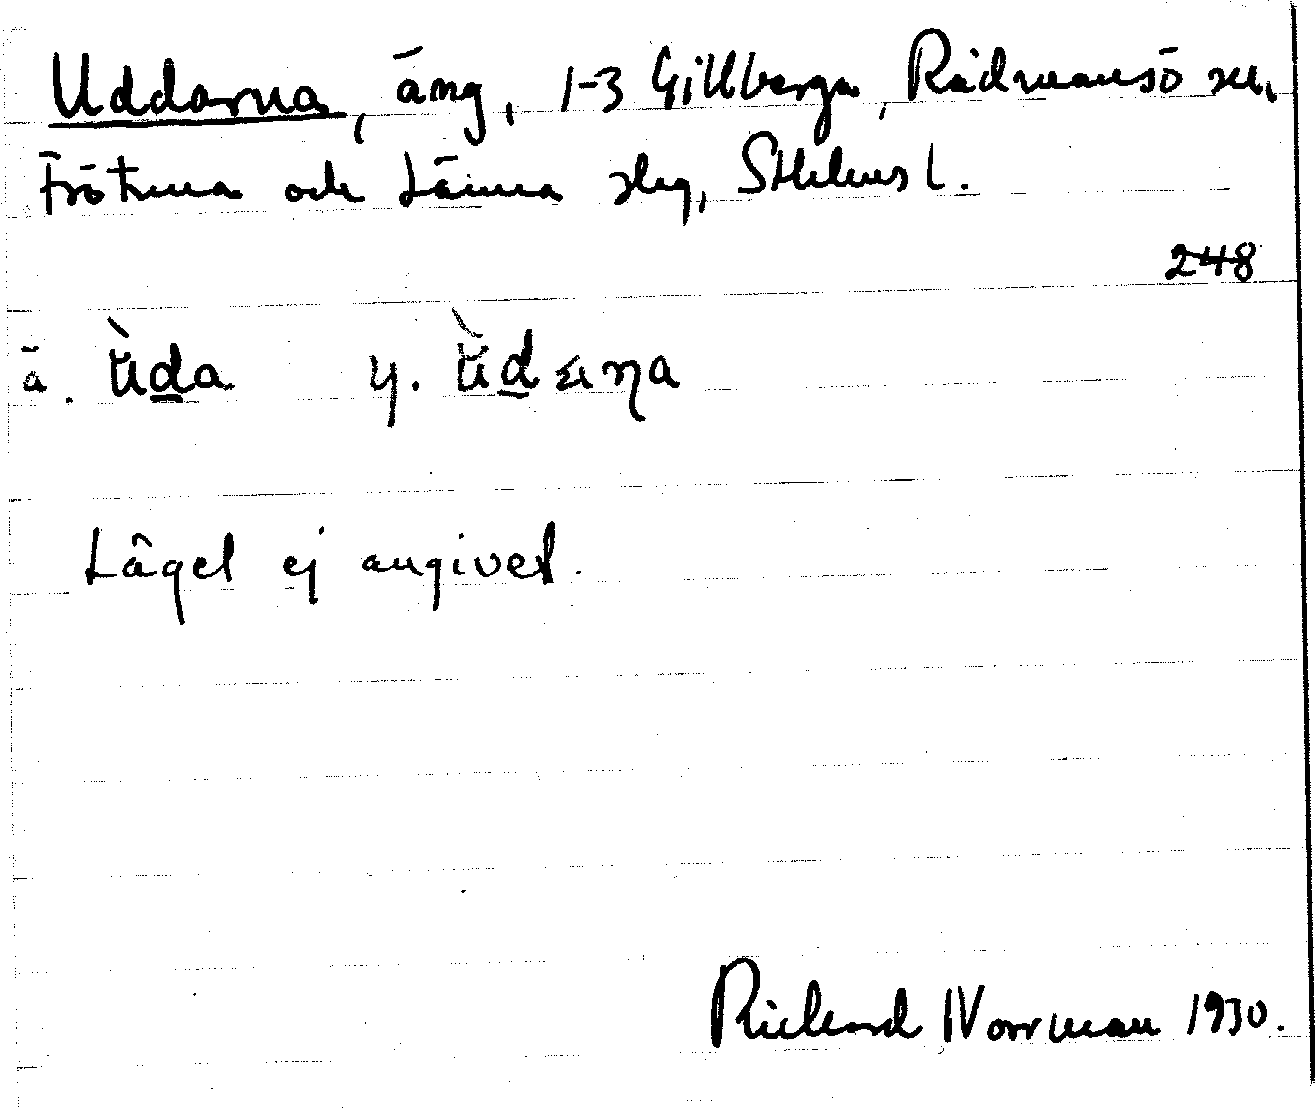 Uddarna, äng, 1-3 Gillberga, Rådmansö sn,
Frötuna och Länna slg, Sthlms l.
248
ä. ùda y. ùdaṇa
Läget ej angivet.
Richard Norrman 1930.